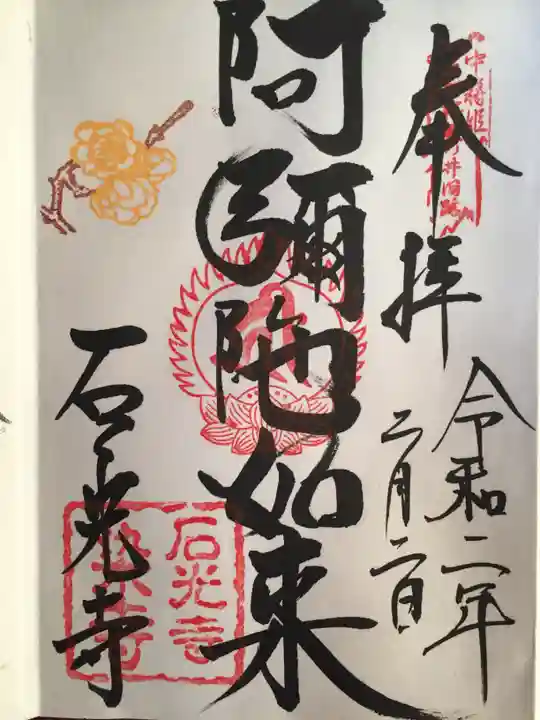 奉拝
令和二年
二月二日
阿彌陀如来
石光寺
中将姫
井旧跡
石光寺
染寺